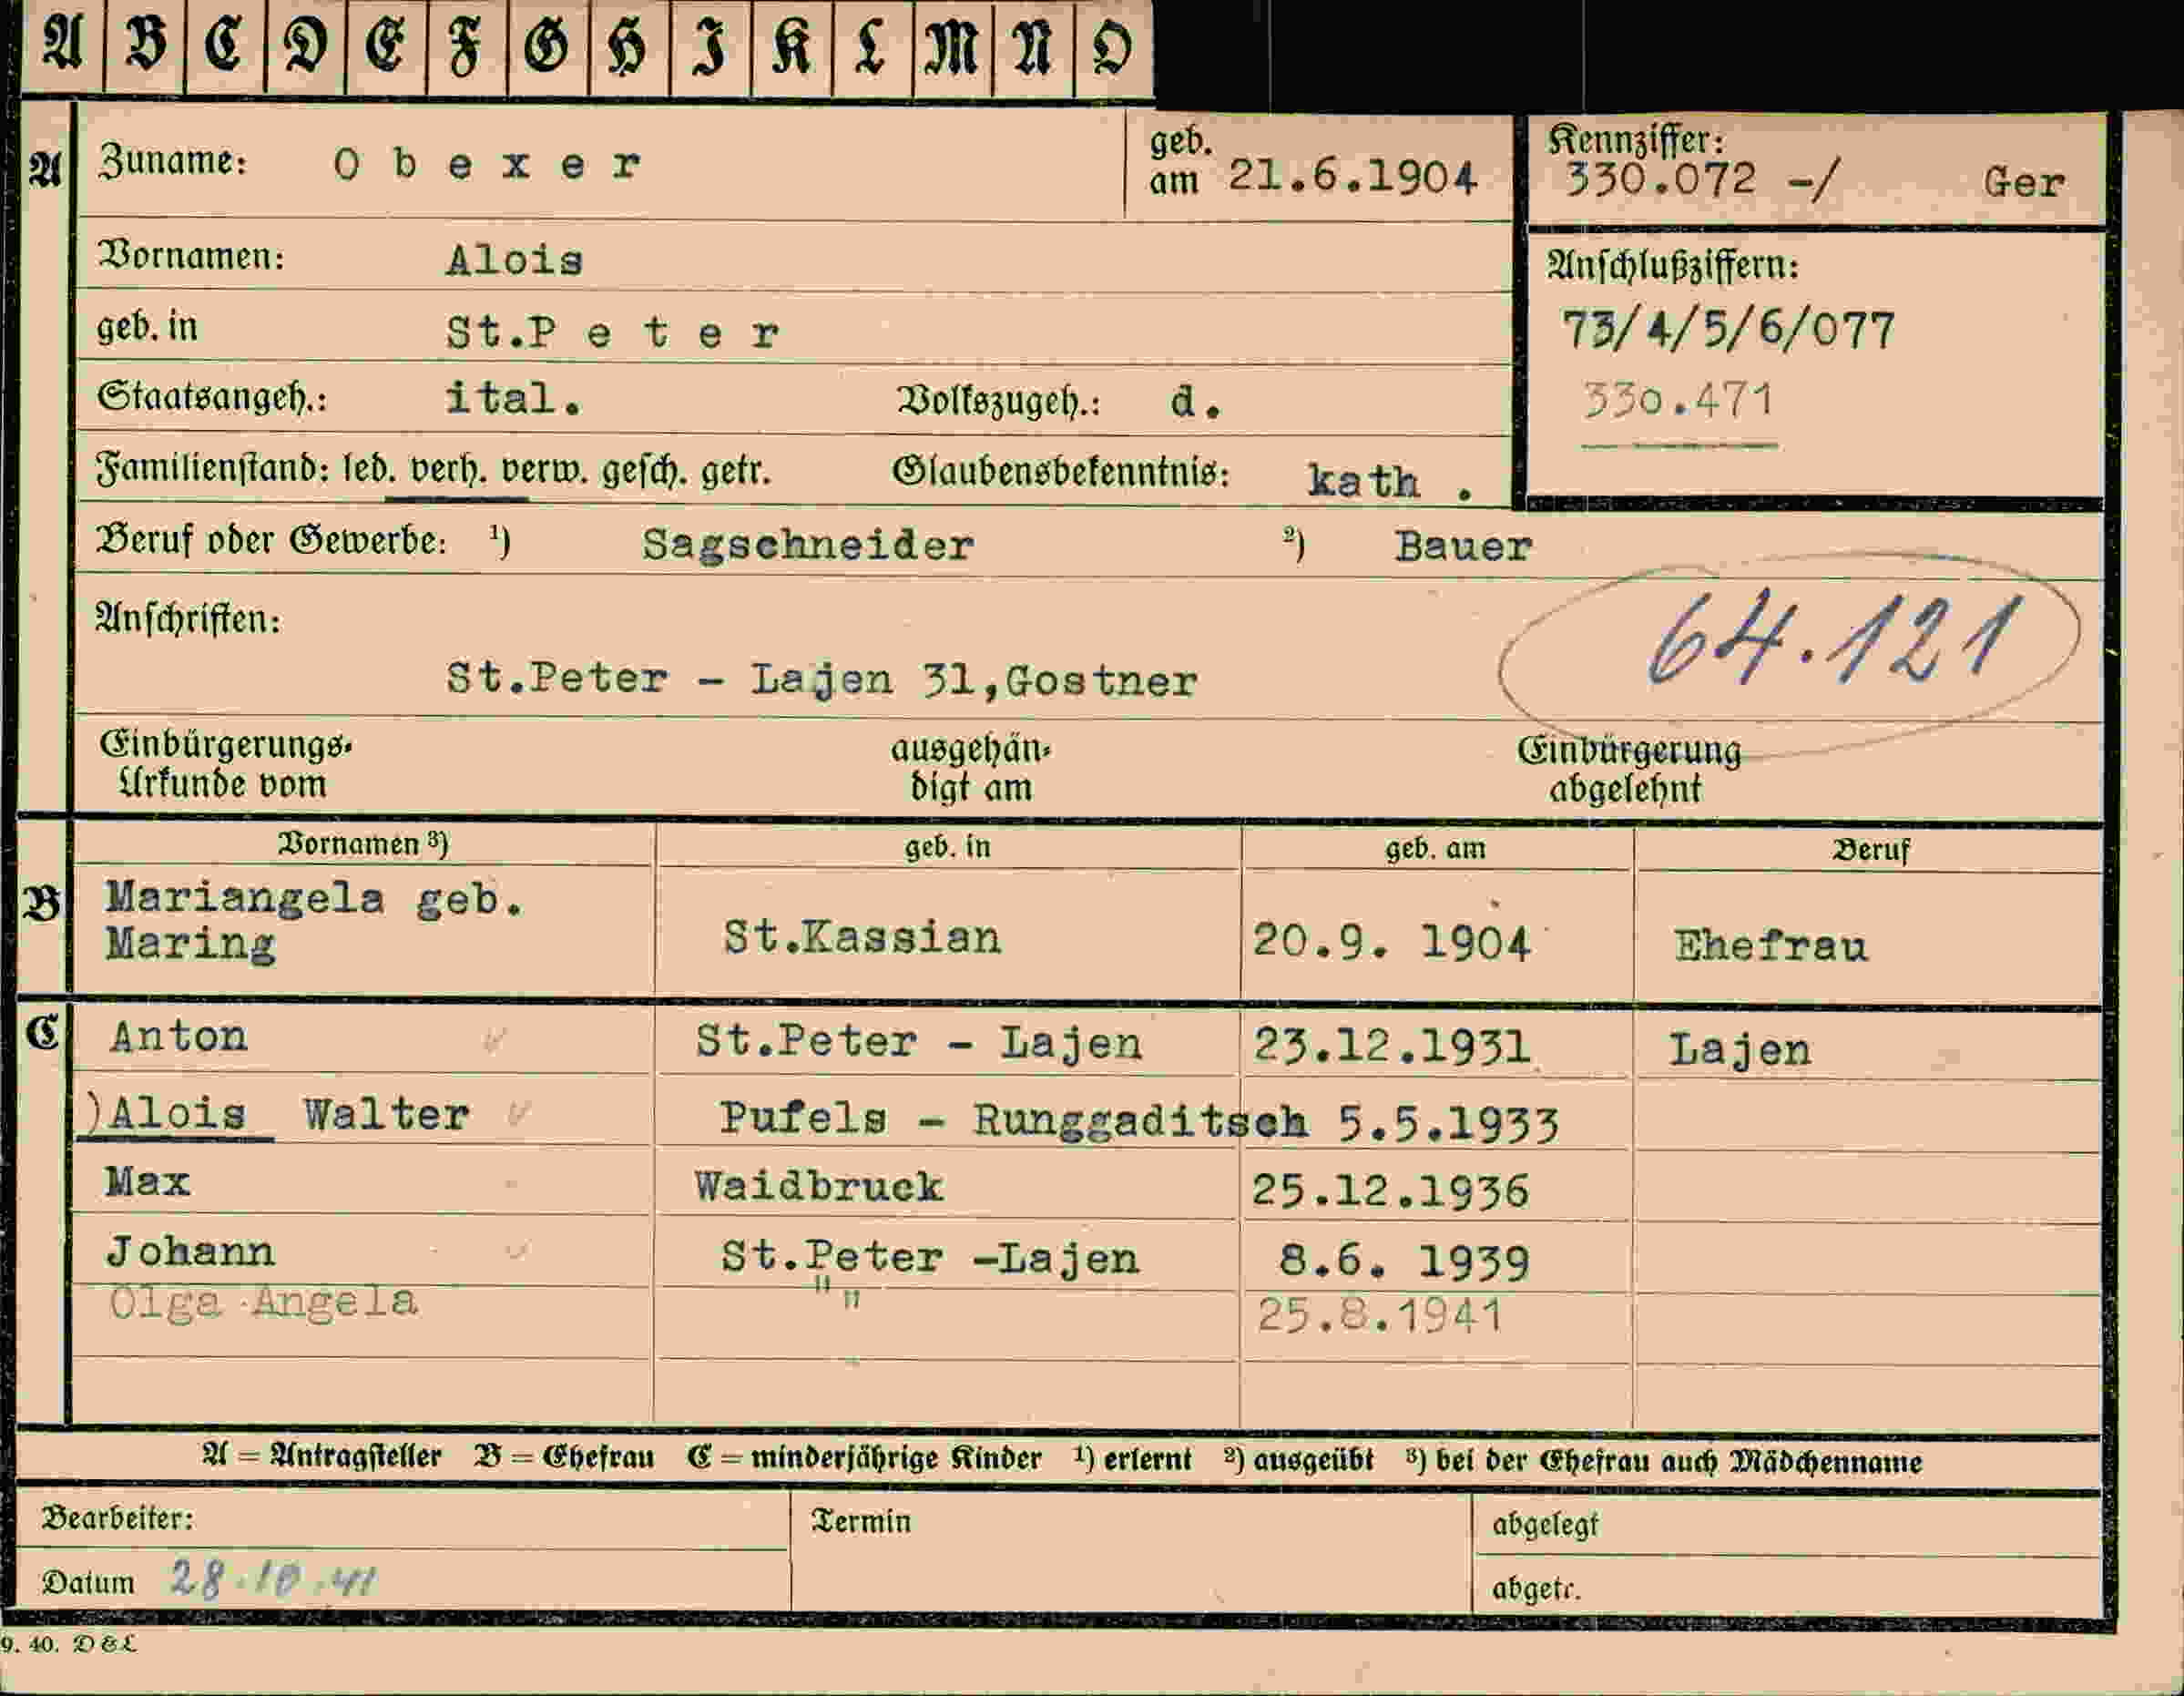 A B C D E F G H I K L M N O
A Zuname: O b e x e r geb. am 21.6.1904 Kennziffer: 330.072 -/ Ger
Vornamen: Alois Anschlußziffern:
geb. in St.P e t e r 73/4/5/6/077
Staatsangeh.: ital. Volkszugeh.: d. 330.471
Familienstand: led. verh. verw. gesch. getr. Glaubensbekenntnis: kath .
Beruf oder Gewerbe: ¹) Sagschneider ²) Bauer
Anschriften: 64.121
St.Peter - Lajen 31,Gostner
Einbürgerungs- ausgehän- Einbürgerung
Urkunde vom digt am abgelehnt
Vornamen ³) geb. in geb. am Beruf
B Mariangela geb.
Maring St.Kassian 20.9. 1904 Ehefrau
C Anton St.Peter - Lajen 23.12.1931 Lajen
)Alois Walter Pufels - Runggaditsch 5.5.1933
Max Waidbruck 25.12.1936
Johann St.Peter -Lajen 8.6. 1939
Olga Angela " " 25.8.1941
A = Antragsteller B = Ehefrau C = minderjährige Kinder ¹) erlernt ²) ausgeübt ³) bei der Ehefrau auch Mädchenname
Bearbeiter: Termin abgelegt
Datum 28.10.41 abgetr.
9. 40. D & L